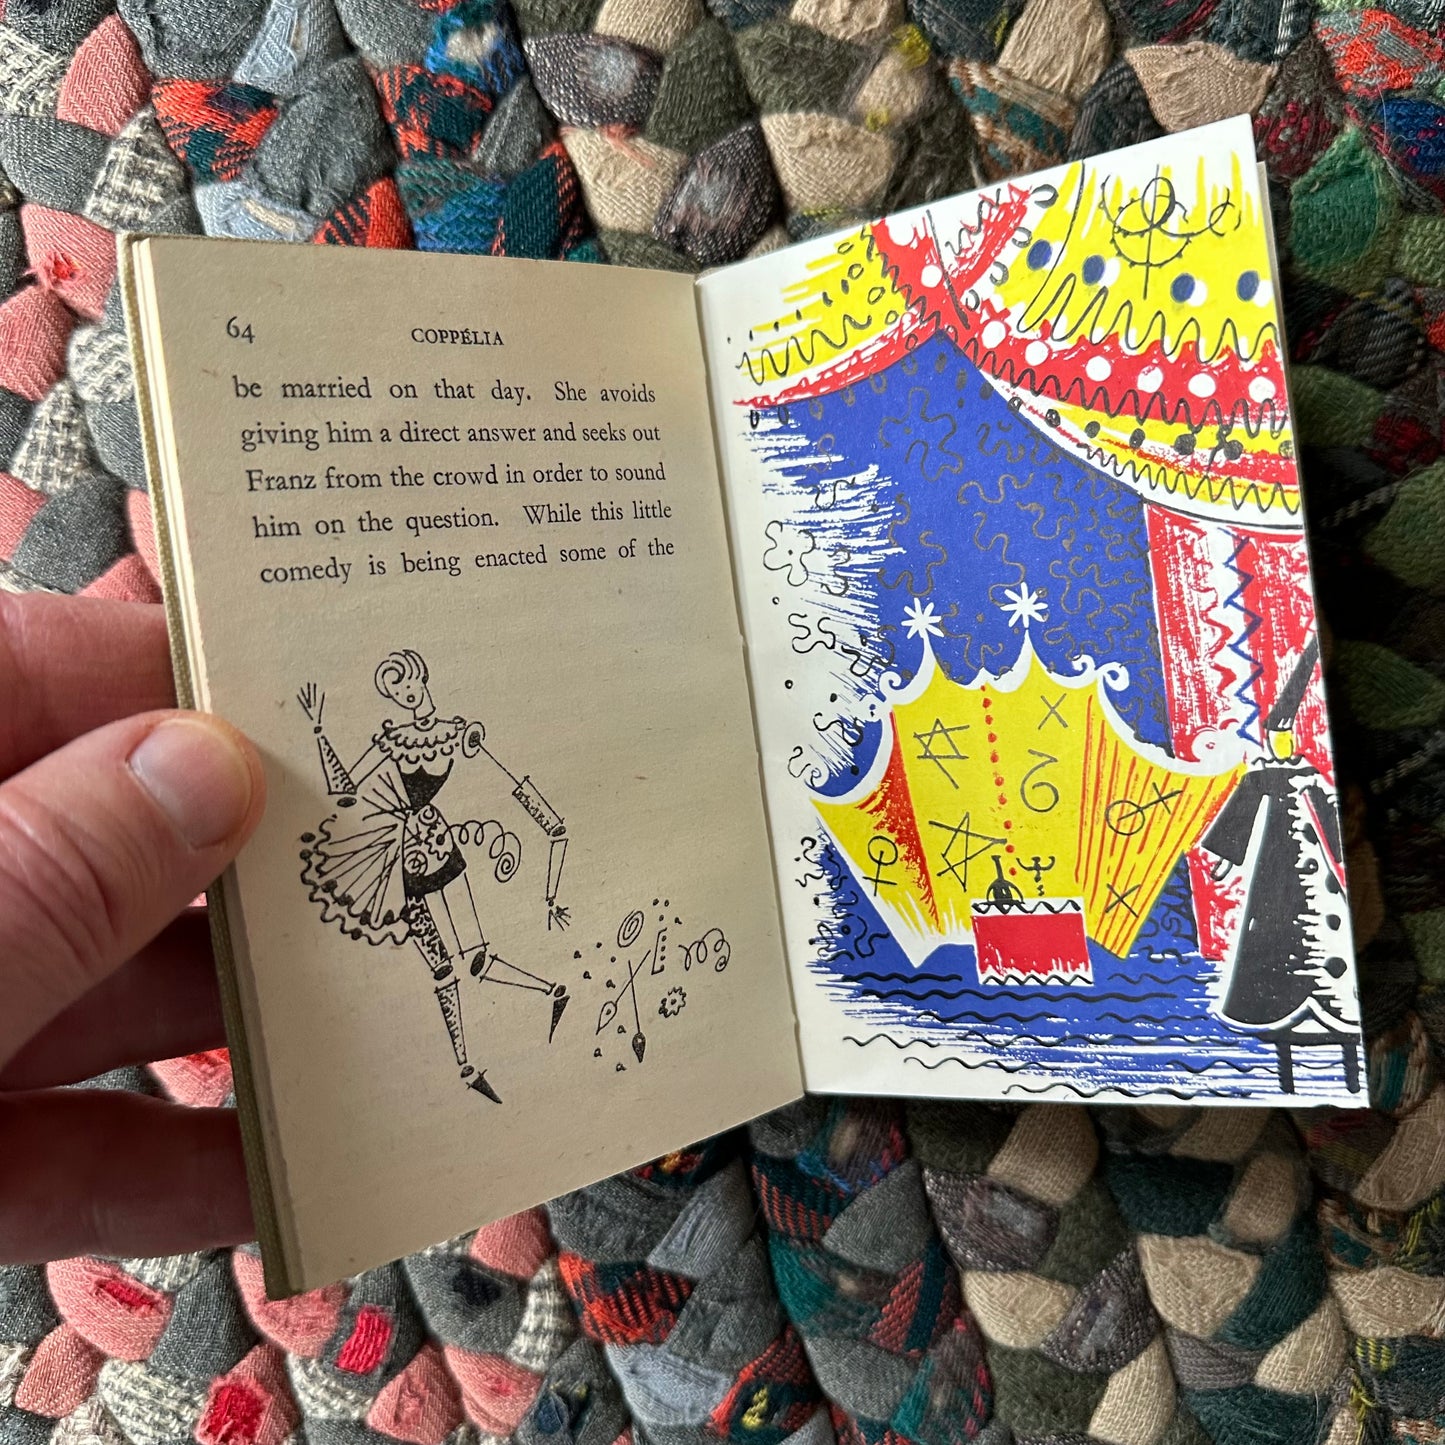 64
COPPÉLIA
be married on that day. She avoids
giving him a direct answer and seeks out
Franz from the crowd in order to sound
him on the question. While this little
comedy is being enacted some of the